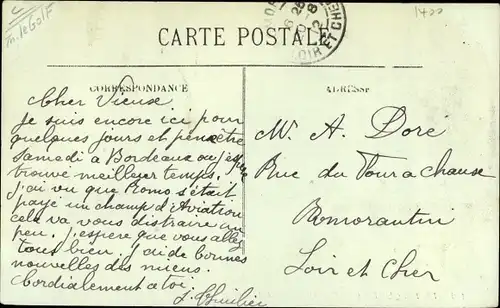 m. le Golf
1400
CARTE POSTALE
LOIR ET CHER
CORRESPONDANCE
ADRESSE
Cher Vieux
Je suis encore ici pour
quelques jours et peut être
samedi à Bordeaux ou j'espère
trouve meilleur temps.
J'ai vu que Romo s'était
payé un champ d'Aviation
cela va vous distraire un
peu. J'espère que vous allez
tous bien, j'ai de bonnes
nouvelles des miens.
Cordialement à toi
Mr. A. Doré
Rue du Four a chaux
Romorantin
Loir et Cher